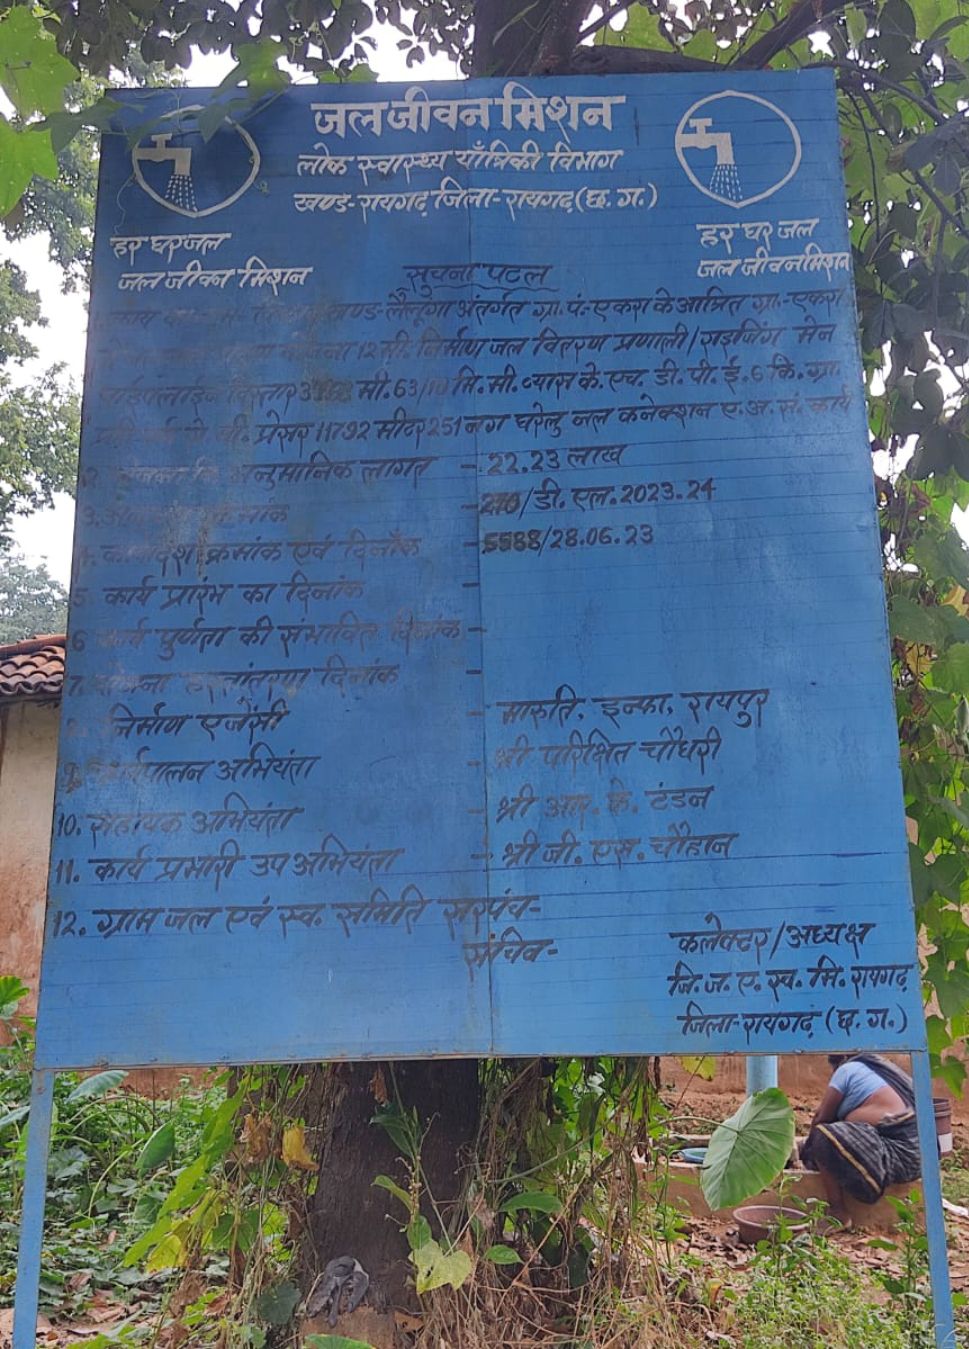 जल जीवन मिशन
लोक स्वास्थ्य याँत्रिकी विभाग
खण्ड-रायगढ़ जिला-रायगढ़(छ.ग.)
हर घर जल
जल जीवन मिशन
हर घर जल
जल जीवन मिशन
सुचना पटल
खण्ड-लैलूंगा अंतर्गत ग्रा.पं.-एकरा के आश्रित ग्रा.-एकरा
12 मी. निर्माण जल वितरण प्रणाली/राइजिंग मेन
पाईपलाईन विस्तार मी. 63/ मि.मी. व्यास के.एच.डी.पी.ई. 6 कि.ग्रा.
प्रेसर 11792 मीटर 251 नग घरेलु जल कनेक्शन ए.अ.सं. कार्य
अनुमानिक लागत - 22.23 लाख
3. - 210/डी.एल.2023.24
कार्यादेश क्रमांक एवं दिनाँक - 5588/28.06.23
5. कार्य प्रारंभ का दिनांक -
6 कार्य पुर्णता की संभावित दिनांक -
7. योजना हस्तांतरण दिनांक -
निर्माण एजेंसी - मारुति. इन्फ्रा. रायपुर
9. कार्यपालन अभियंता - श्री परिक्षित चौधरी
10. सहायक अभियंता - श्री आर. के. टंडन
11. कार्य प्रभारी उप अभियंता - श्री जी. एस. चौहान
12. ग्राम जल एवं स्व. समिति सरपंच-
संचिव-
कलेक्टर/अध्यक्ष
जि.ज.ए.स्व.मि. रायगढ़
जिला-रायगढ़ (छ.ग.)